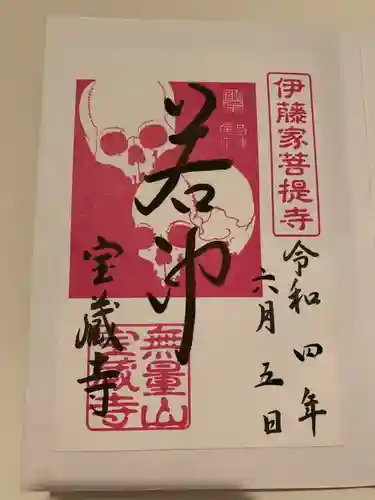 伊藤家菩提寺
令和四年
六月五日
若冲
宝蔵寺
無量山
宝蔵寺